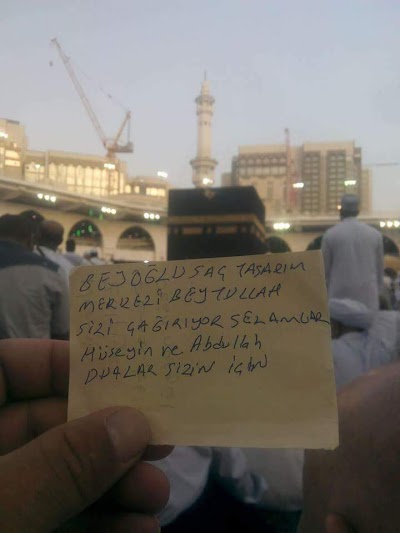 BEJOGLU SAÇ TASARIM
MERKEZİ BEYTULLAH
SİZİ ÇAĞIRIYOR SELAMLAR
Hüseyin ve Abdullah
DUALAR SİZİN İÇİN